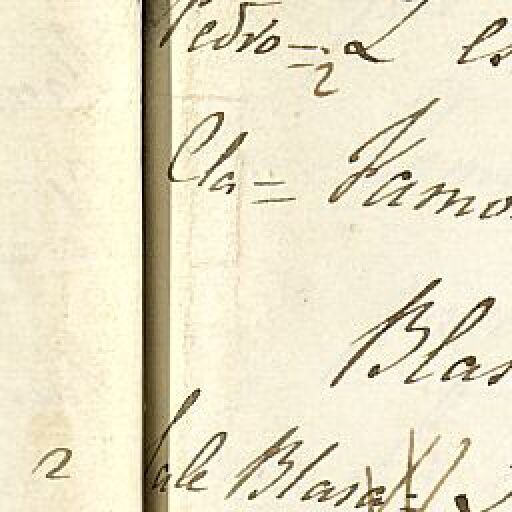 Pedro = 2 es
2
Cla = Vamo
Blas
2 Sale Blasa =